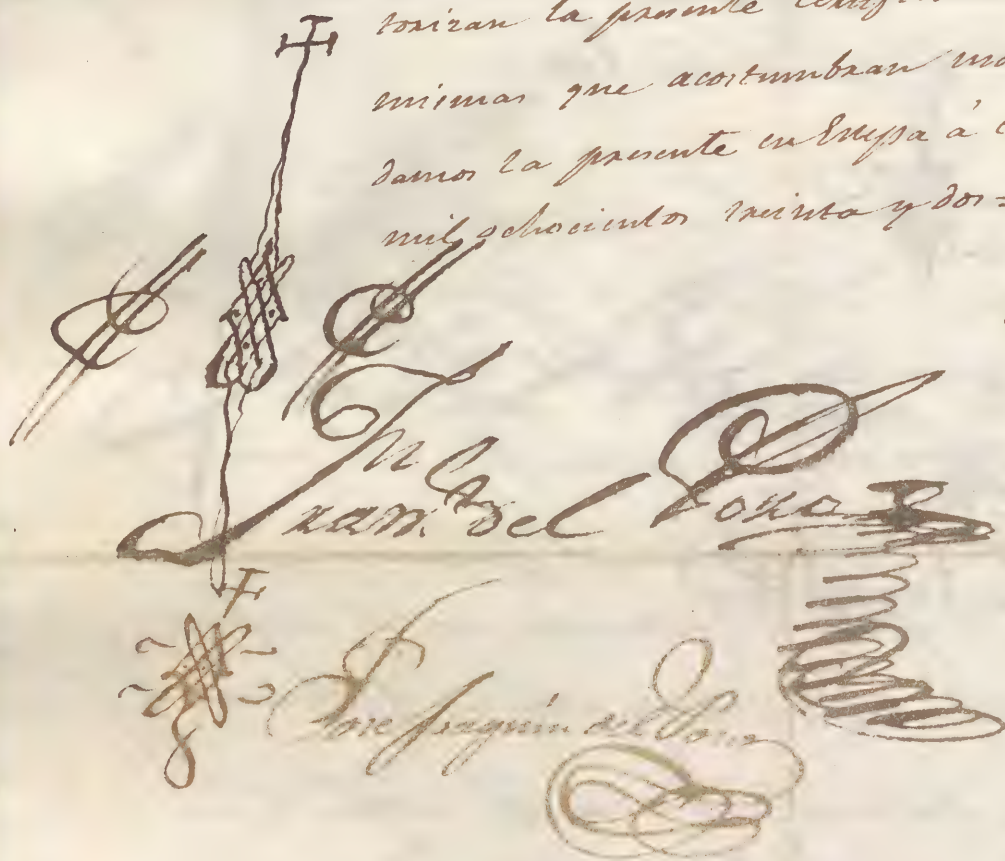 torizan la presente certifi
mismas que acostumbran
damos la presente en Estepa á
mil ochocientos treinta y dos=
Juan del Pozo
Jose Joaquin del Pozo